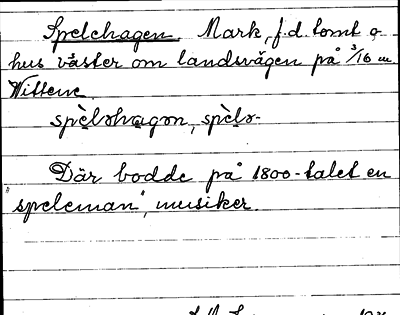 Spelehagen. Mark, f.d. tomt o.
hus väster om landsvägen på 3/16 m.
Wittene
spèlǝhagǝn, spèlǝ-
Där bodde på 1800-talet en
"speleman", musiker.